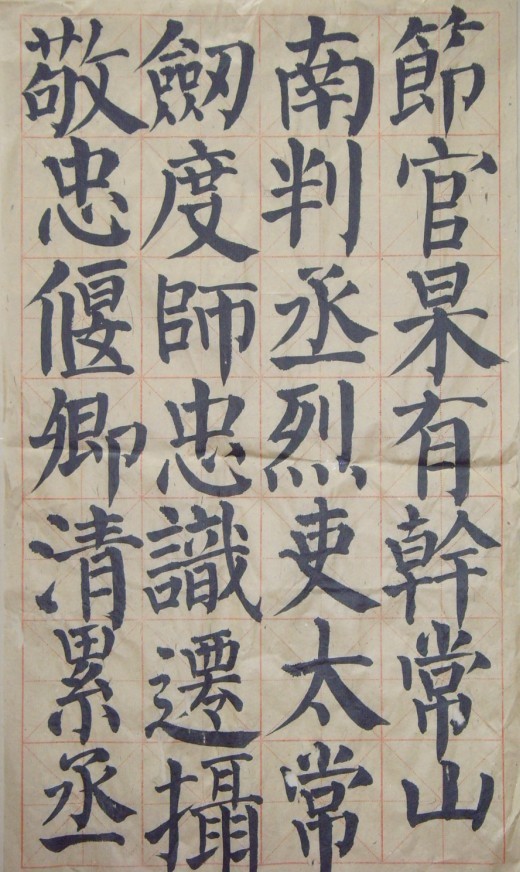 節官杲有幹常山
南判丞烈吏太常
劒度師忠識遷攝
敬忠偃卿清累丞